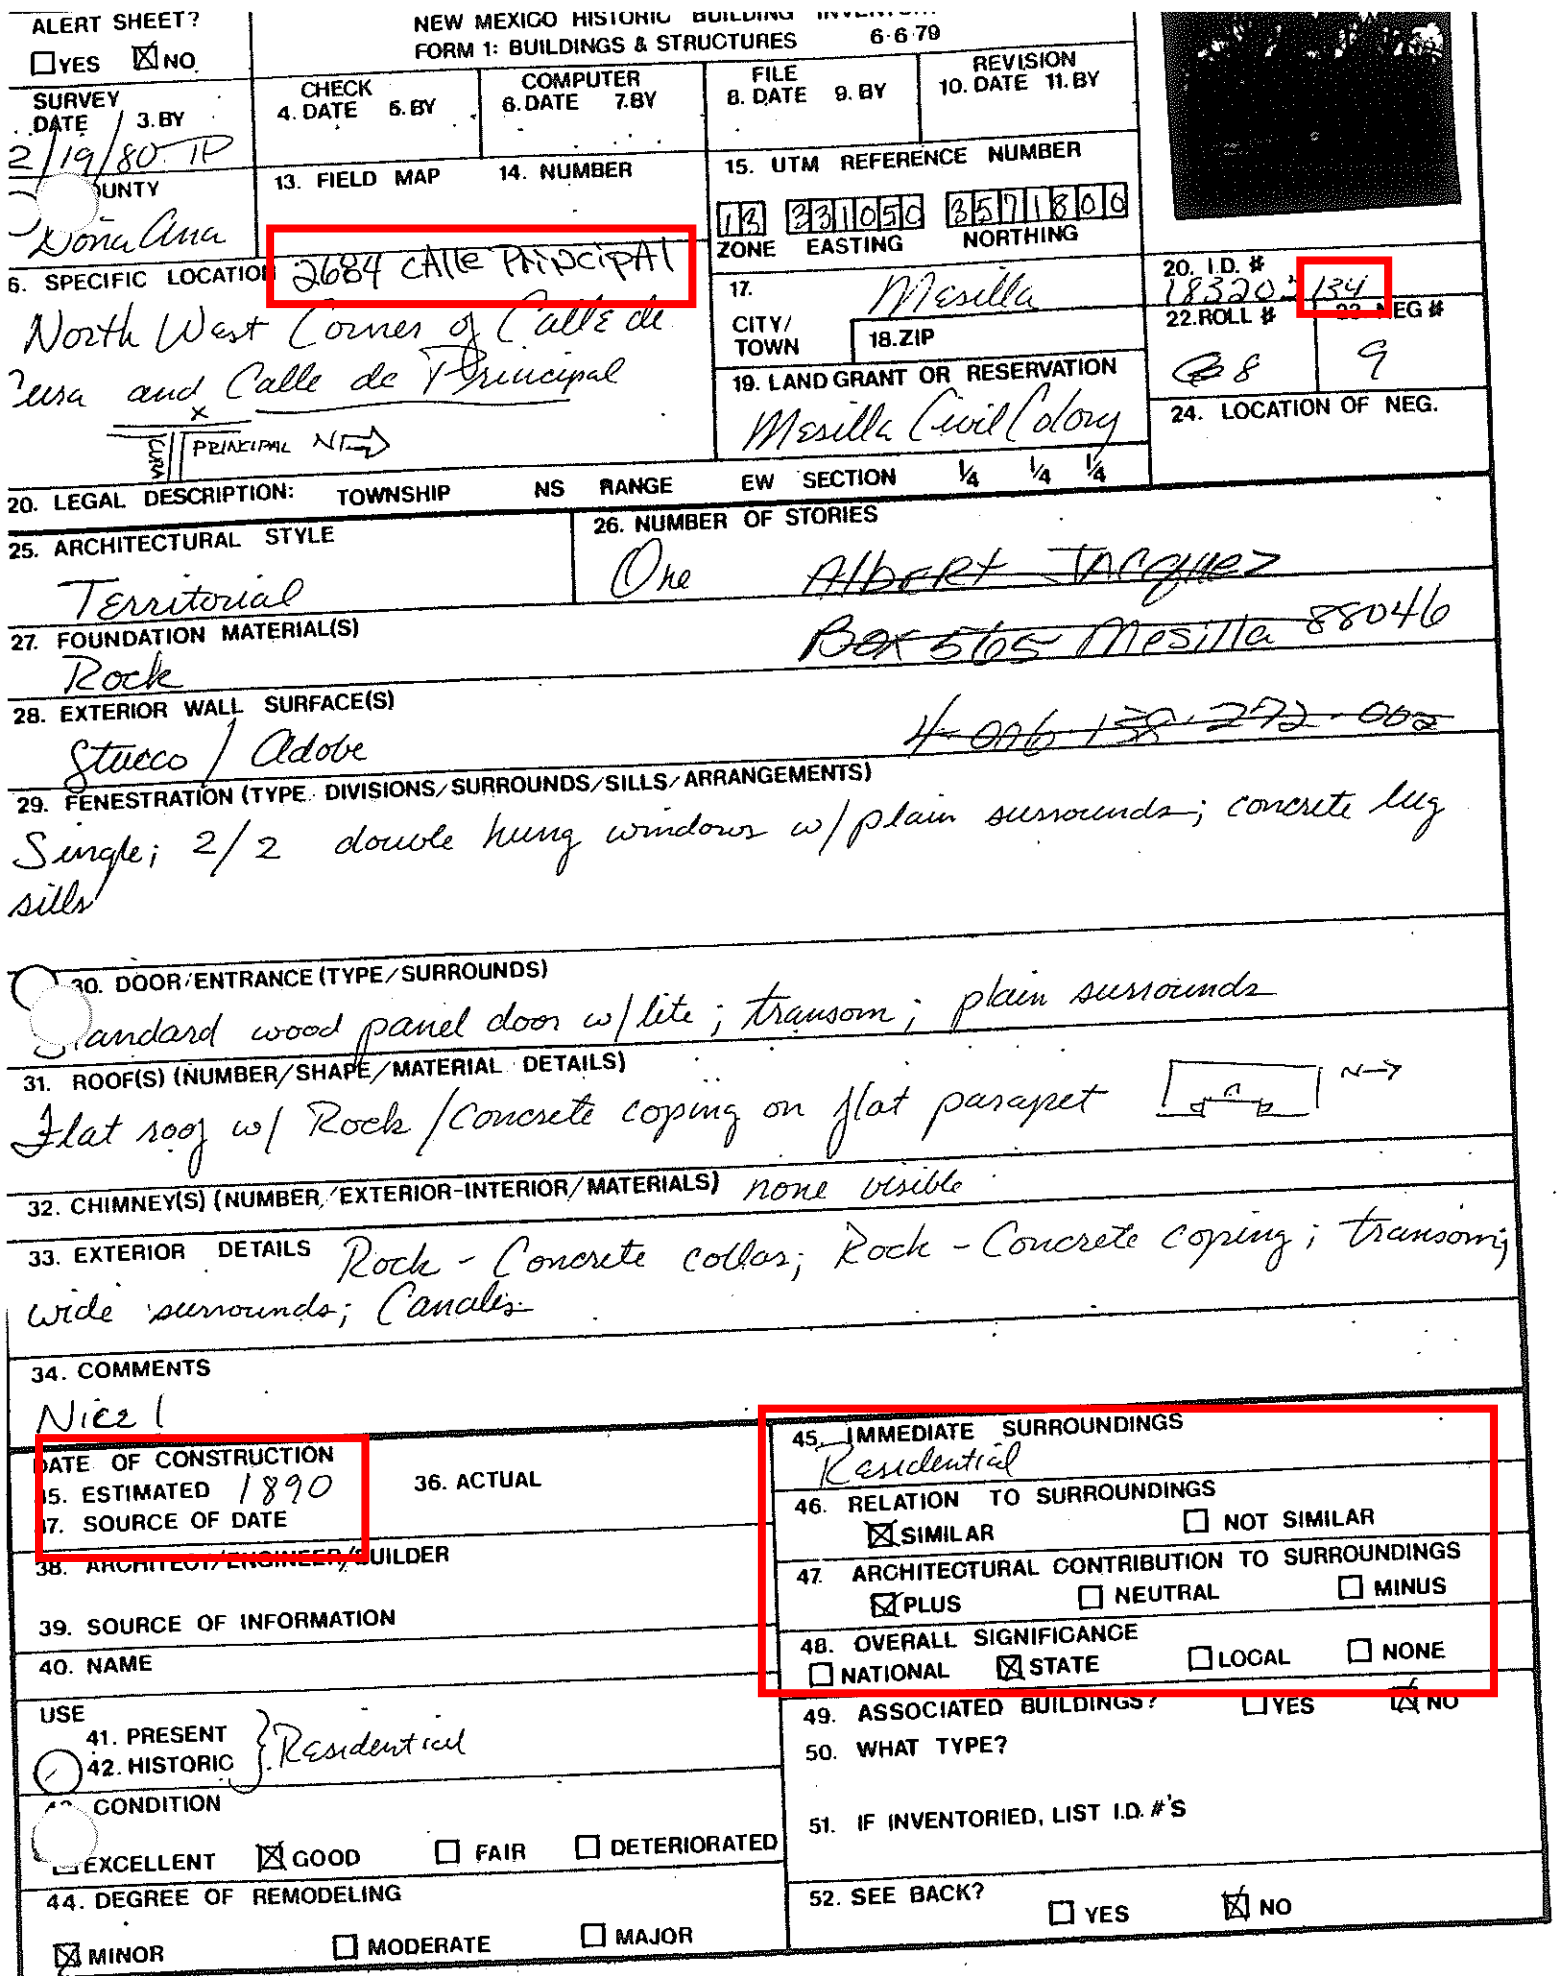 ALERT SHEET?
YES NO
NEW MEXICO HISTORIC BUILDING INVENTORY
FORM 1: BUILDINGS & STRUCTURES 6-6-79
SURVEY
DATE 3. BY
2/19/80 TP
CHECK
4. DATE 5. BY
COMPUTER
6. DATE 7. BY
FILE
8. DATE 9. BY
REVISION
10. DATE 11. BY
OUNTY
Doña Ana
13. FIELD MAP 14. NUMBER
15. UTM REFERENCE NUMBER
13 331050 3571800
ZONE EASTING NORTHING
6. SPECIFIC LOCATION 2684 CAlle PRiNcipAl
North West Corner of Calle de
Cura and Calle de Principal
X
CURA PRINCIPAL N
17. Mesilla
CITY/
TOWN
18. ZIP
19. LAND GRANT OR RESERVATION
Mesilla Civil Colony
20. I.D. #
18320 134
22. ROLL # NEG #
8 9
24. LOCATION OF NEG.
20. LEGAL DESCRIPTION: TOWNSHIP NS RANGE EW SECTION ¼ ¼ ¼
25. ARCHITECTURAL STYLE
Territorial
26. NUMBER OF STORIES
One
Albert Jacquez
Box 565 Mesilla 88046
27. FOUNDATION MATERIAL(S)
Rock
28. EXTERIOR WALL SURFACE(S)
Stucco / Adobe
4-006-138-272-002
29. FENESTRATION (TYPE DIVISIONS/SURROUNDS/SILLS/ARRANGEMENTS)
Single; 2/2 double hung windows w/plain surrounds; concrete lug
sills
30. DOOR/ENTRANCE (TYPE/SURROUNDS)
Standard wood panel door w/lite; transom; plain surrounds
31. ROOF(S) (NUMBER/SHAPE/MATERIAL DETAILS)
Flat roof w/ Rock/Concrete coping on flat parapet N
32. CHIMNEY(S) (NUMBER/EXTERIOR-INTERIOR/MATERIALS) none visible
33. EXTERIOR DETAILS Rock-Concrete collar; Rock-Concrete coping; transom;
wide surrounds; Canales
34. COMMENTS
Nice!
DATE OF CONSTRUCTION
35. ESTIMATED 1890 36. ACTUAL
37. SOURCE OF DATE
38. ARCHITECT/ENGINEER/BUILDER
39. SOURCE OF INFORMATION
40. NAME
USE
41. PRESENT
42. HISTORIC
Residential
CONDITION
EXCELLENT GOOD FAIR DETERIORATED
44. DEGREE OF REMODELING
MINOR MODERATE MAJOR
45. IMMEDIATE SURROUNDINGS
Residential
46. RELATION TO SURROUNDINGS
SIMILAR NOT SIMILAR
47. ARCHITECTURAL CONTRIBUTION TO SURROUNDINGS
PLUS NEUTRAL MINUS
48. OVERALL SIGNIFICANCE
NATIONAL STATE LOCAL NONE
49. ASSOCIATED BUILDINGS? YES NO
50. WHAT TYPE?
51. IF INVENTORIED, LIST I.D. #'S
52. SEE BACK?
YES NO